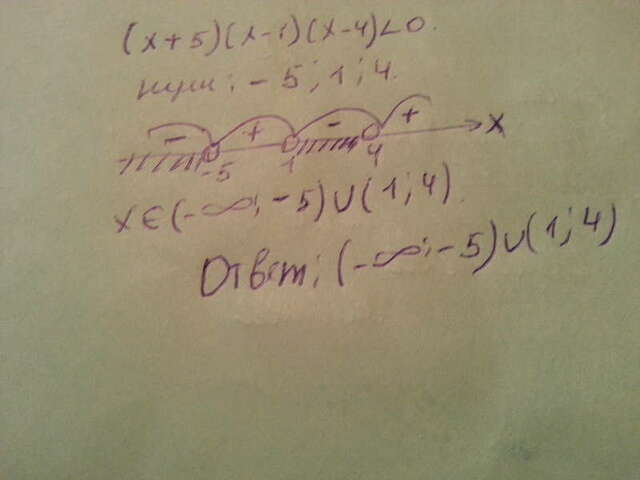 (x+5)(x-1)(x-4)<0.
нули: -5; 1; 4.
- + - + x
-5 1 4
x∈(-∞; -5)∪(1; 4).
Ответ: (-∞; -5)∪(1; 4)